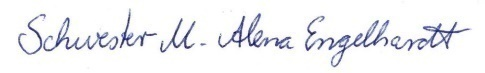 Schwester M. Alena Engelhardt